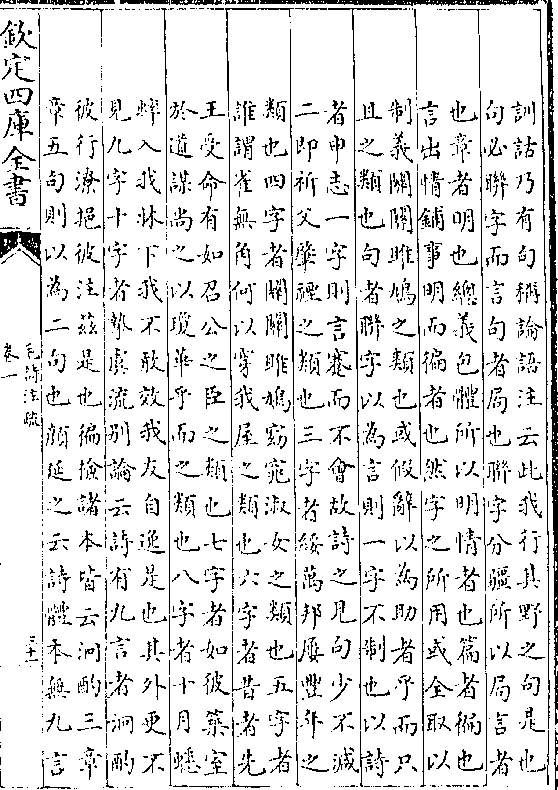 訓詁乃有句稱論語注云此我行其野之句是也
句必聯字而言句者局也聯字分疆所以局言者
也章者明也總義包體所以明情者也篇者徧也
言出情鋪事明而徧者也然字之所用或全取以
制義關關雎鳩之類也或假辭以為助者乎而只
且之類也句者聯字以為言則一字不制也以詩
者申志一字則言蹇而不會故詩之見句少不減
二即祈父肇禋之類也三字者綏萬邦屢豐年之
類也四字者關關雎鳩窈窕淑女之類也五字者
誰謂雀無角何以穿我屋之類也六字者昔者先
王受命有如召公之臣之類也七字者如彼築室
於道謀尚之以瓊華乎而之類也八字者十月蟋
蟀入我牀下我不敢效我友自逸是也其外更不
見九字十字者摯虞流別論云詩有九言者泂酌
彼行潦挹彼注茲是也徧檢諸本皆云泂酌三章
章五句則以為二句也顏延之云詩體本無九言
欽定四庫全書
毛詩注疏
卷一